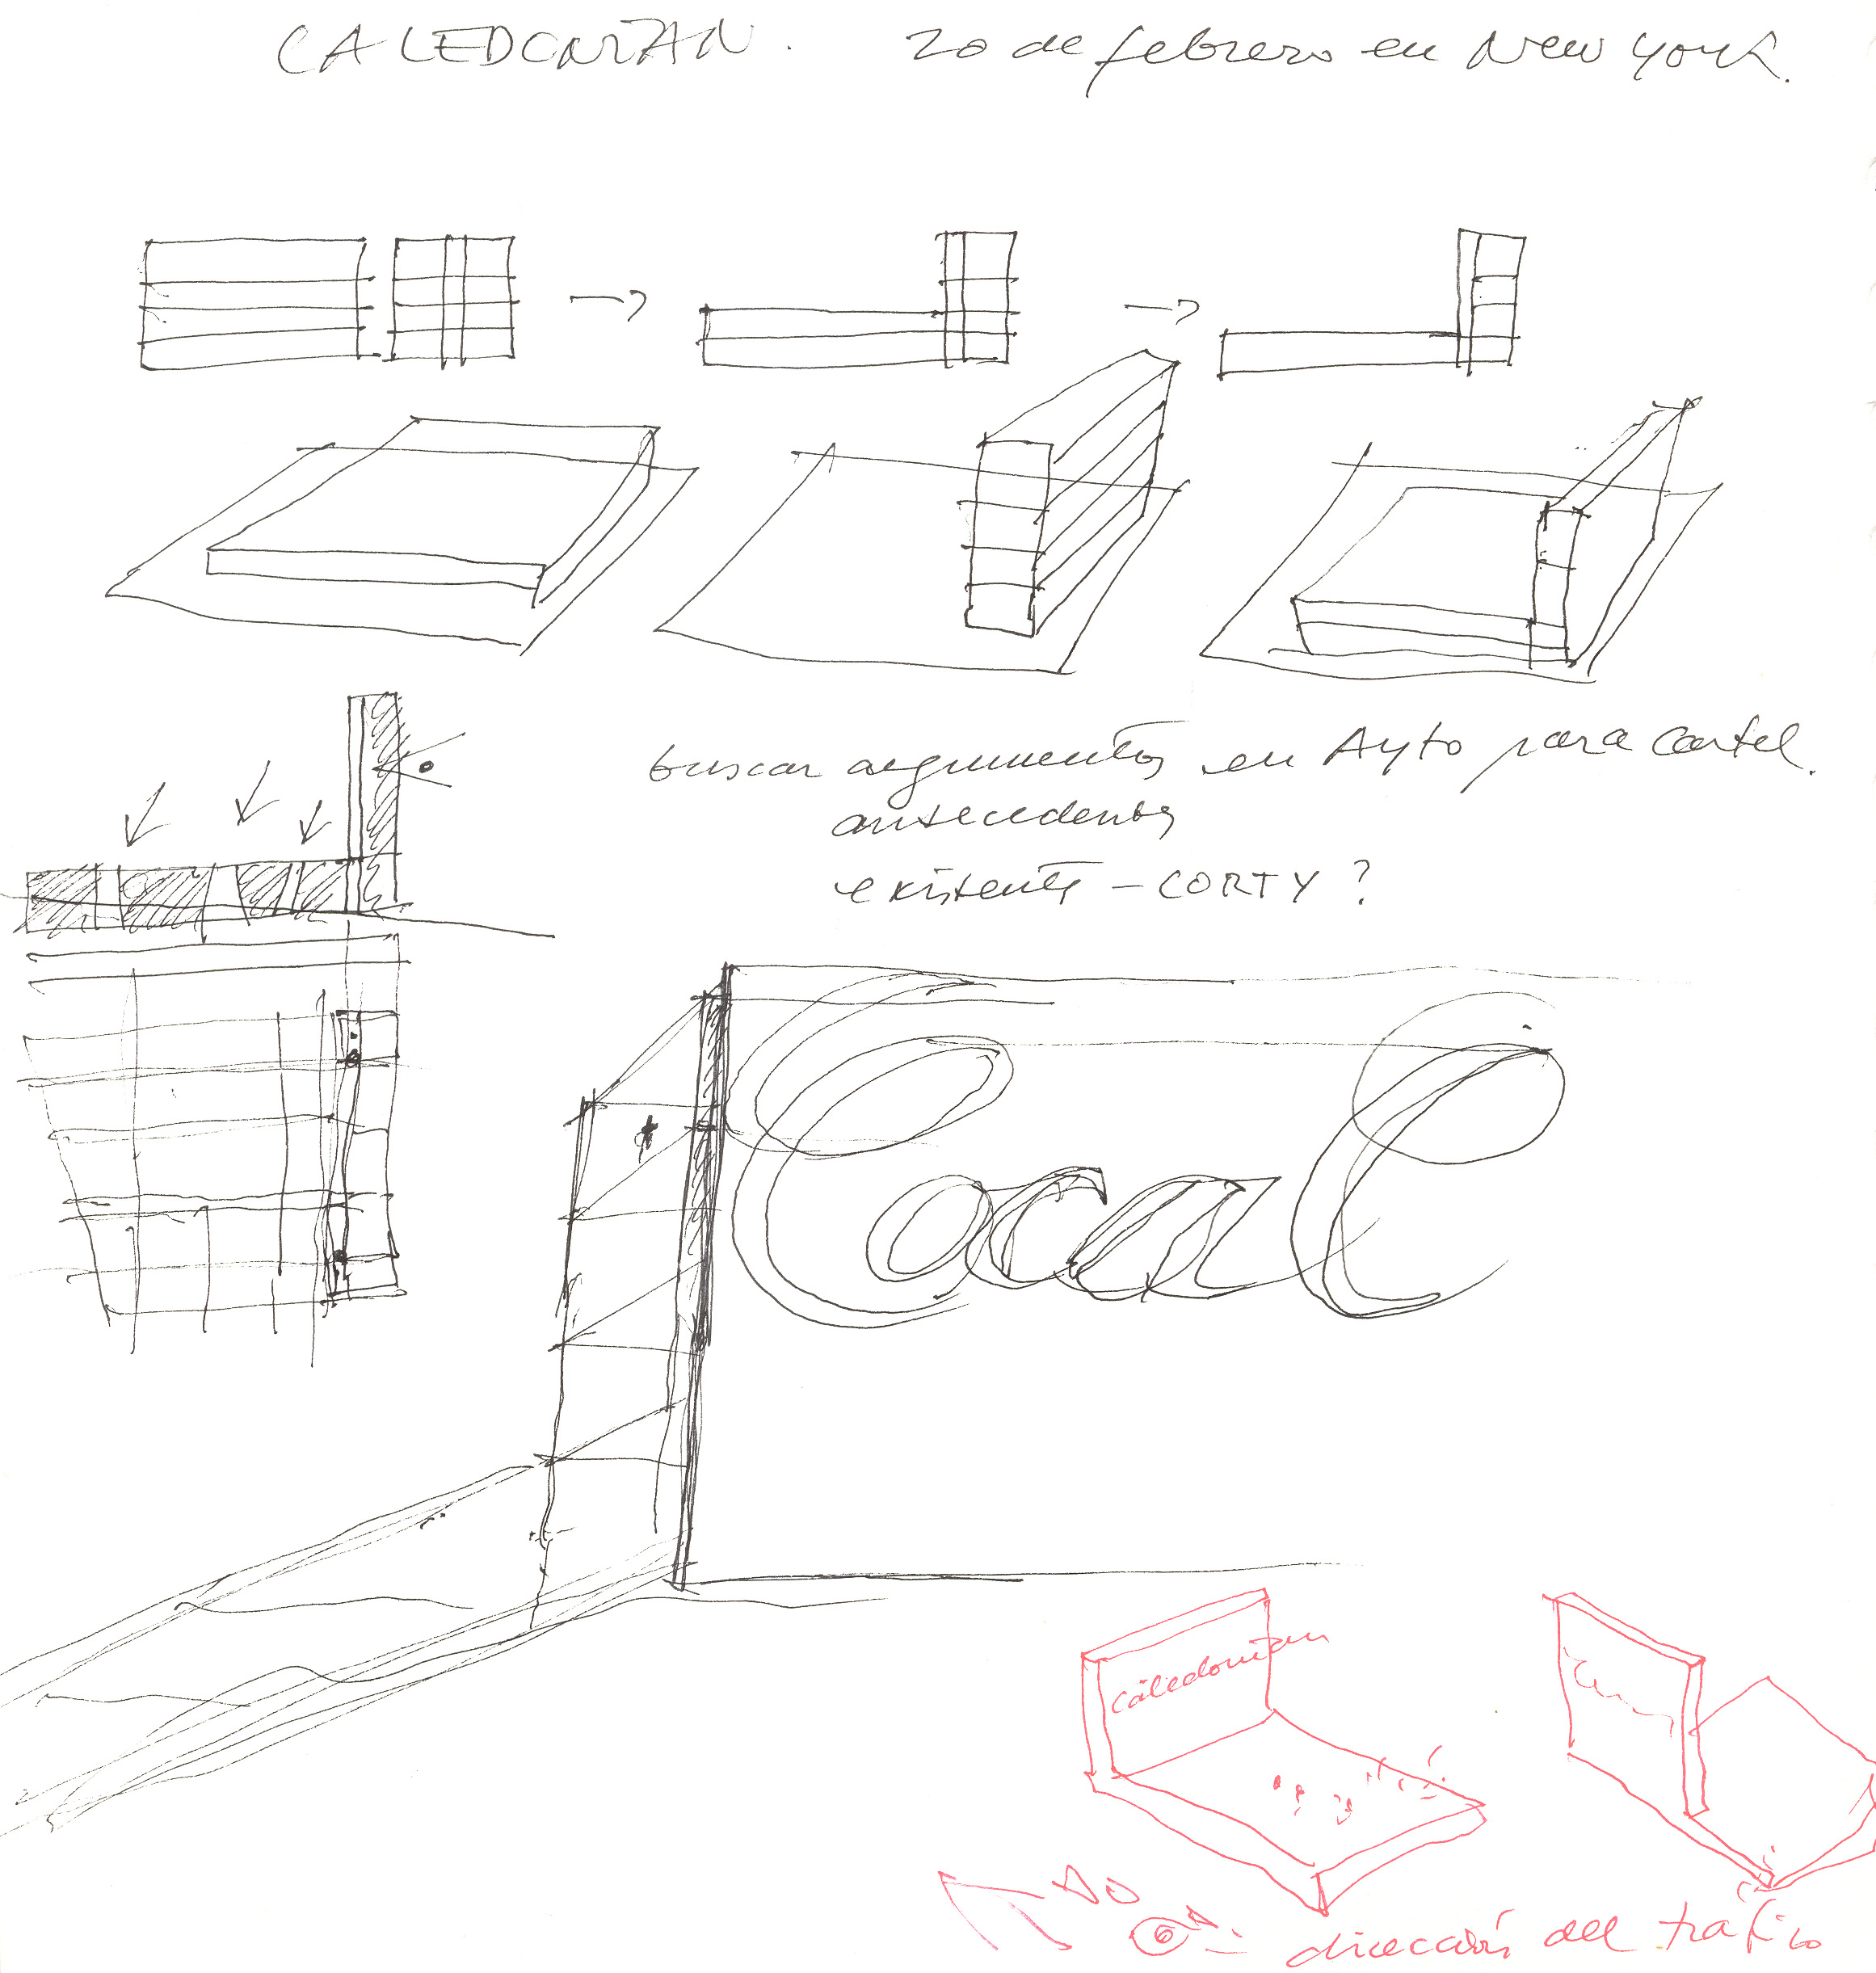 CALEDONIAN. 20 de febrero en New York.
buscar argumentos en Ayto para cartel.
antecedentes
existentes – CORTY?
Coca C
caledonian
dirección del tráfico